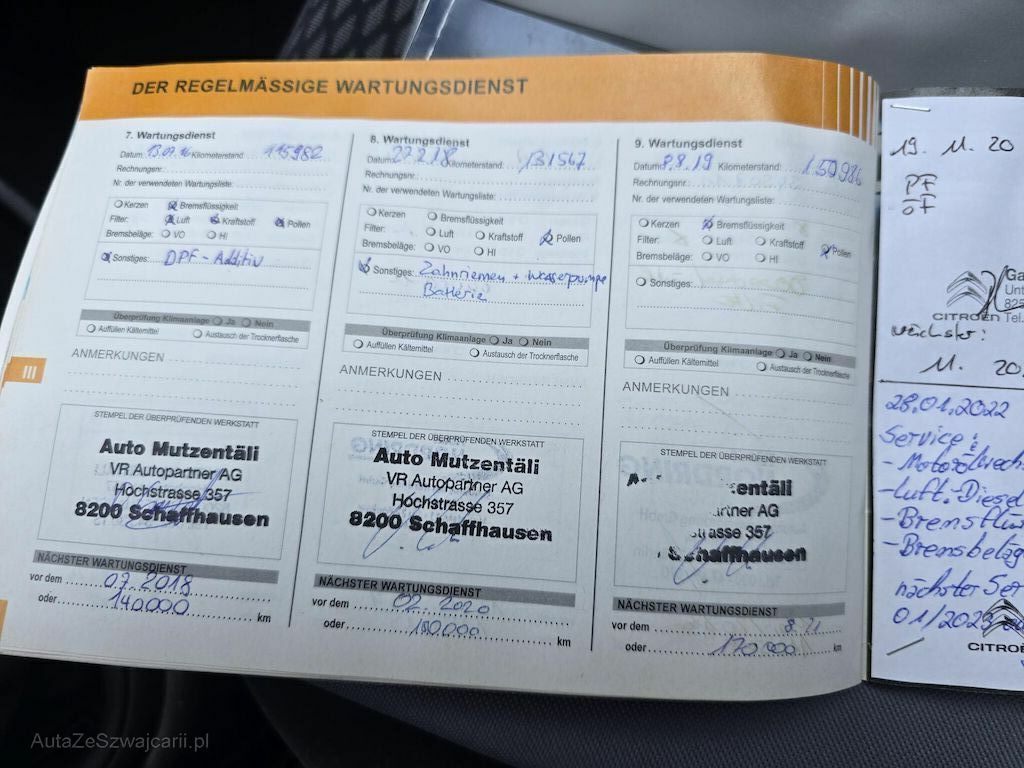 DER REGELMÄSSIGE WARTUNGSDIENST
7. Wartungsdienst
Datum: 13.07.16 Kilometerstand: 115982
Rechnungsnr.:
Nr. der verwendeten Wartungsliste:
Kerzen Bremsflüssigkeit
Filter: Luft Kraftstoff Pollen
Bremsbeläge: VO HI
Sonstiges: DPF-Additiv
Überprüfung Klimaanlage Ja Nein
Auffüllen Kältemittel Austausch der Trocknerflasche
ANMERKUNGEN
STEMPEL DER ÜBERPRÜFENDEN WERKSTATT
Auto Mutzentäli
VR Autopartner AG
Hochstrasse 357
8200 Schaffhausen
NÄCHSTER WARTUNGSDIENST
vor dem 07.2018
oder 140000 km
8. Wartungsdienst
Datum: 27.2.18 Kilometerstand: 131567
Rechnungsnr.:
Nr. der verwendeten Wartungsliste:
Kerzen Bremsflüssigkeit
Filter: Luft Kraftstoff Pollen
Bremsbeläge: VO HI
Sonstiges: Zahnriemen + Wasserpumpe
Batterie
Überprüfung Klimaanlage Ja Nein
Auffüllen Kältemittel Austausch der Trocknerflasche
ANMERKUNGEN
STEMPEL DER ÜBERPRÜFENDEN WERKSTATT
Auto Mutzentäli
VR Autopartner AG
Hochstrasse 357
8200 Schaffhausen
NÄCHSTER WARTUNGSDIENST
vor dem 02.2020
oder km
9. Wartungsdienst
Datum: 8.8.19 Kilometerstand: 150986
Rechnungsnr.:
Nr. der verwendeten Wartungsliste:
Kerzen Bremsflüssigkeit
Filter: Luft Kraftstoff Pollen
Bremsbeläge: VO HI
Sonstiges:
Überprüfung Klimaanlage Ja Nein
Auffüllen Kältemittel Austausch der Trocknerflasche
ANMERKUNGEN
STEMPEL DER ÜBERPRÜFENDEN WERKSTATT
entäli
rtner AG
strasse 357
Schaffhausen
NÄCHSTER WARTUNGSDIENST
vor dem 8.21
oder 170000 km
III
19. 11. 20
PF
ÖF
Ga
Unt
825
CITROËN Tel.
Nächster:
11. 20
28.01.2022
Service:
- Motorölwech
- Luft-, Diesel
- Bremsflü
- Bremsbeläg
nächster Ser
01/2023
CITROË
AutaZeSzwajcarii.pl